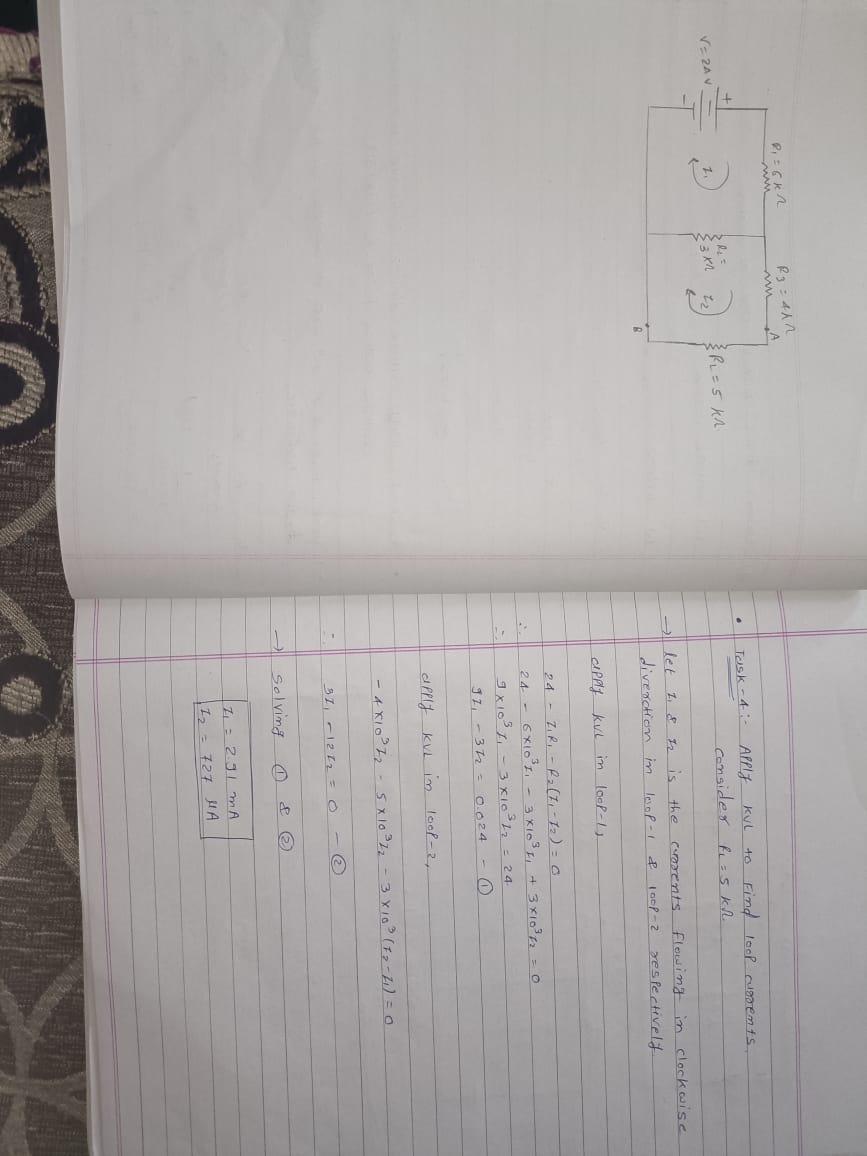 R1 = 6 KΩ
R3 = 4KΩ
A
+
V = 24 V
-
I1
R2 =
3 KΩ
I2
RL = 5 KΩ
B
• Task-4 :- APPly KVL to Find loop currents.
consider RL = 5 KΩ
→ let I1 & I2 is the currents flowing in clockwise
direction in loop-1 & loop-2 respectively.
apply KVL in loop-1,
24 - I1R1 - R2(I1-I2) = 0
∴ 24 - 6×10³I1 - 3×10³I1 + 3×10³I2 = 0
∴ 9×10³I1 - 3×10³I2 = 24
9I1 - 3I2 = 0.024 - ①
apply KVL in loop-2,
- 4×10³I2 - 5×10³I2 - 3×10³(I2-I1) = 0
∴ 3I1 - 12I2 = 0 - ②
→ Solving ① & ②
I1 = 2.91 mA
I2 = 727 μA